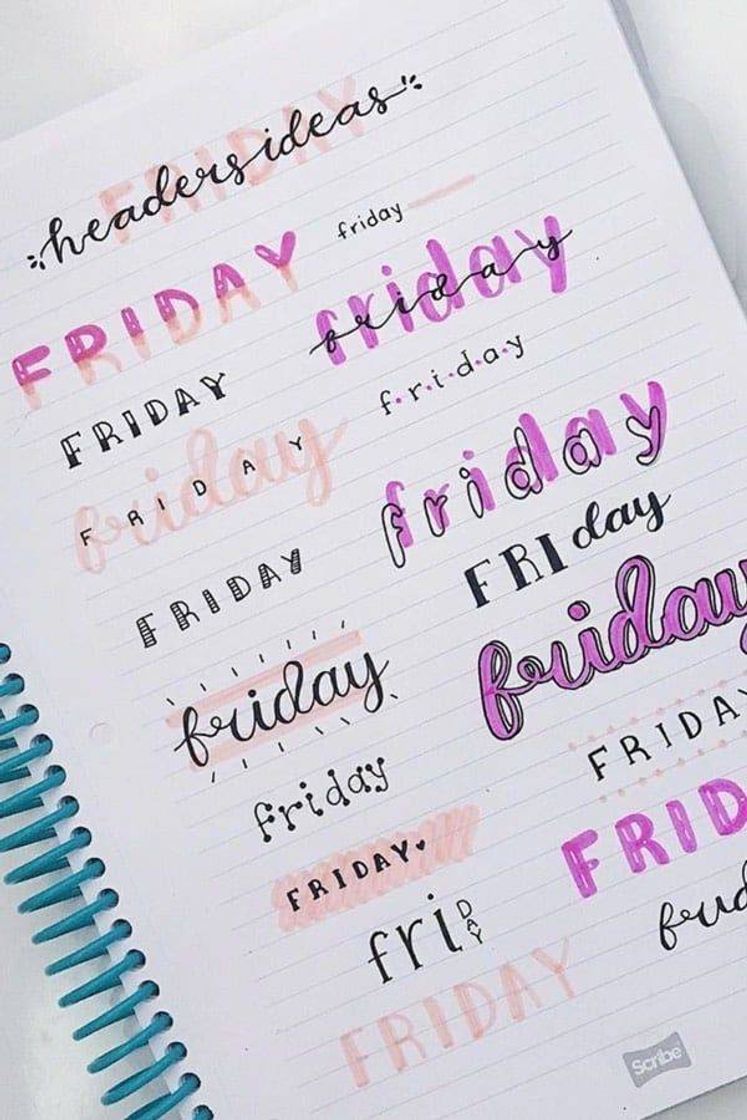 FRIDAY
headers ideas
friday
FRIDAY
friday
friday
FRIDAY
f.r.i.d.a.y
friday
FRIDAY
friday
friday
FRIday
FRIDAY
friday
friday
FRIDAY
friday
FRID
FRIDAY♥
frid
friDAY
FRIDAY
Scribe